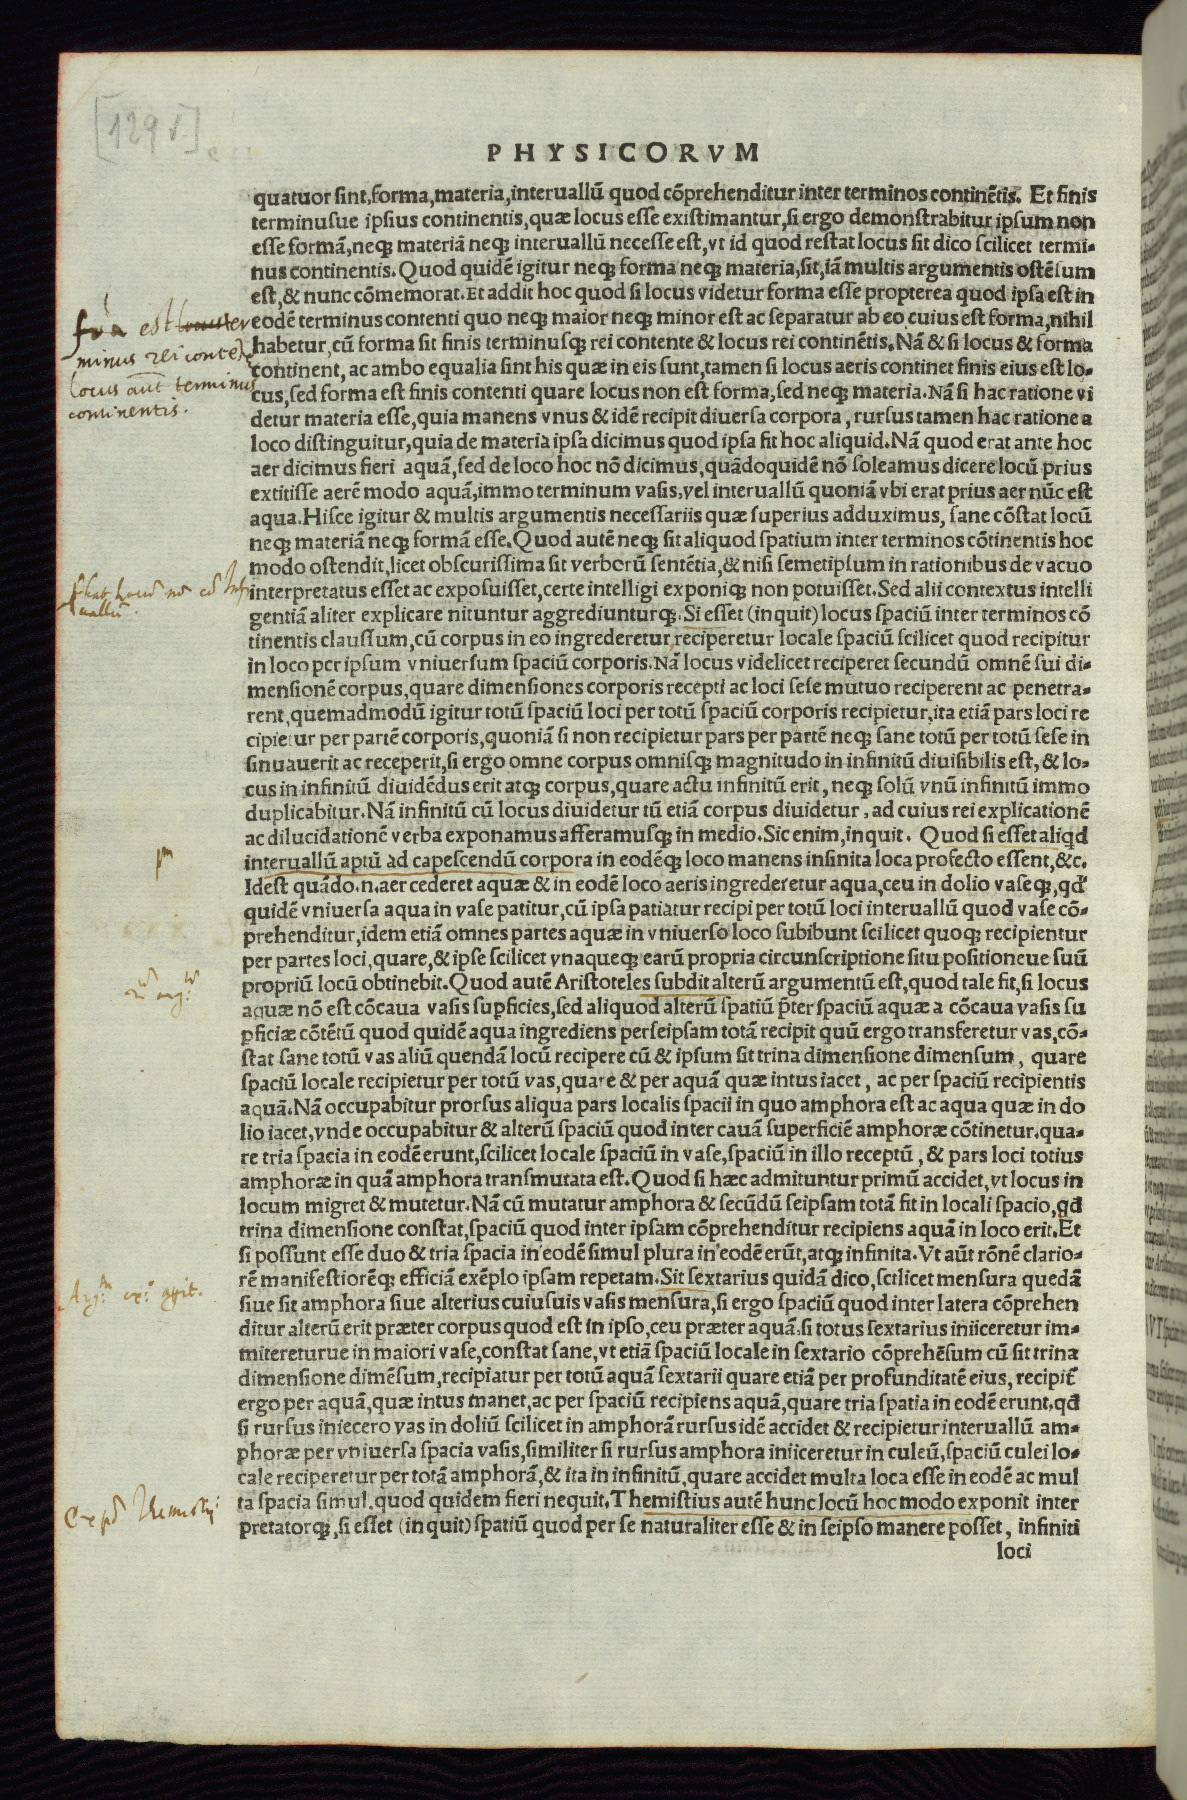 [129 v.]
PHYSICORVM
quatuor sint, forma, materia, interuallū quod cōprehenditur inter terminos continētis. Et finis
terminusue ipsius continentis, quæ locus esse existimantur, si ergo demonstrabitur ipsum non
esse formā, neqꝫ materiā neqꝫ interuallū necesse est, vt id quod restat locus sit dico scilicet termi-
nus continentis. Quod quidē igitur neqꝫ forma neqꝫ materia, sit, iā multis argumentis ostēsum
est, & nunc cōmemorat. Et addit hoc quod si locus videtur forma esse propterea quod ipsa est in
eodē terminus contenti quo neqꝫ maior neqꝫ minor est ac separatur ab eo, cuius est forma, nihil
habetur, cū forma sit finis terminusqꝫ rei contente & locus rei continētis. Nā & si locus & forma
continent, ac ambo equalia sint his quæ in eis sunt, tamen si locus aeris continet finis eius est lo-
cus, sed forma est finis contenti quare locus non est forma, sed neqꝫ materia. Nā si hac ratione vi
detur materia esse, quia manens vnus & idē recipit diuersa corpora, rursus tamen hac ratione a
loco distinguitur, quia de materia ipsa dicimus quod ipsa fit hoc aliquid. Nā quod erat ante hoc
aer dicimus fieri aquā, sed de loco hoc nō dicimus, quādoquidē nō soleamus dicere locū prius
extitisse aerē modo aquā, immo terminum vasis, vel interuallū quoniā vbi erat prius aer nūc est
aqua. Hisce igitur & multis argumentis necessariis quæ superius adduximus, sane cōstat locū
neqꝫ materiā neqꝫ formā esse. Quod autē neqꝫ sit aliquod spatium inter terminos cōtinentis hoc
modo ostendit, licet obscurissima sit verborū sentētia, & nisi semetipsum in rationibus de vacuo
interpretatus esset ac exposuisset, certe intelligi exponiqꝫ non potuisset. Sed alii contextus intelli
gentiā aliter explicare nituntur aggrediunturqꝫ. Si esset (inquit) locus spaciū inter terminos cō
tinentis claussum, cū corpus in eo ingrederetur, reciperetur locale spaciū scilicet quod recipitur
in loco per ipsum vniuersum spaciū corporis. Nā locus videlicet reciperet secundū omnē sui di-
mensionē corpus, quare dimensiones corporis recepti ac loci sese mutuo reciperent ac penetra-
rent, quemadmodū igitur totū spaciū loci per totū spaciū corporis recipietur, ita etiā pars loci re
cipietur per partē corporis, quoniā si non recipietur pars per partē neqꝫ sane totū per totū sese in
sinuauerit ac receperit, si ergo omne corpus omnisqꝫ magnitudo in infinitū diuisibilis est, & lo-
cus in infinitū diuidēdus erit atqꝫ corpus, quare actu infinitū erit, neqꝫ solū vnū infinitū immo
duplicabitur. Nā infinitū cū locus diuidetur tū etiā corpus diuidetur, ad cuius rei explicationē
ac dilucidationē verba exponamus afferamusqꝫ in medio. Sic enim, inquit. Quod si esset aliqd
interuallū aptū ad capescendū corpora in eodēqꝫ loco manens infinita loca profecto essent, &c.
Idest quādo.n. aer cederet aquæ & in eodē loco aeris ingrederetur aqua, ceu in dolio vaseqꝫ, qd
quidē vniuersa aqua in vase patitur, cū ipsa patiatur recipi per totū loci interuallū quod vase cō-
prehenditur, idem etiā omnes partes aquæ in vniuerso loco subibunt scilicet quoqꝫ recipientur
per partes loci, quare, & ipse scilicet vnaqueqꝫ earū propria circunscriptione situ positioneue suū
propriū locū obtinebit. Quod autē Aristoteles subdit alterū argumentū est, quod tale fit, si locus
aquæ nō est cōcaua vasis supficies, sed aliquod alterū spatiū p̄ter spaciū aquæ a cōcaua vasis su
pficiæ cōtētū quod quidē aqua ingrediens perseipsam totā recipit quū ergo transferetur vas, cō-
stat sane totū vas aliū quendā locū recipere cū & ipsum sit trina dimensione dimensum, quare
spaciū locale recipietur per totū vas, quare & per aquā quæ intus iacet, ac per spaciū recipientis
aquā. Nā occupabitur prorsus aliqua pars localis spacii in quo amphora est ac aqua quæ in do
lio iacet, vnde occupabitur & alterū spaciū quod inter cauā superficiē amphoræ cōtinetur. qua-
re tria spacia in eodē erunt, scilicet locale spaciū in vase, spaciū in illo receptū, & pars loci totius
amphoræ in quā amphora transmutata est. Quod si hæc admituntur primū accidet, vt locus in
locum migret & mutetur. Nā cū mutatur amphora & secūdū seipsam totā fit in locali spacio, qd
trina dimensione constat, spaciū quod inter ipsam cōprehenditur recipiens aquā in loco erit. Et
si possunt esse duo & tria spacia in eodē simul plura in eodē erūt, atqꝫ infinita. Vt aūt rōnē clario-
rē manifestiorēqꝫ efficiā exēplo ipsam repetam. Sit sextarius quidā dico, scilicet mensura quedā
siue sit amphora siue alterius cuiusuis vasis mensura, si ergo spaciū quod inter latera cōprehen
ditur alterū erit præter corpus quod est in ipso, ceu præter aquā. si totus sextarius iniiceretur im-
mitereturue in maiori vase, constat sane, vt etiā spaciū locale in sextario cōprehēsum cū sit trina
dimensione dimēsum, recipiatur per totū aquā sextarii quare etiā per profunditatē eius, recipit̄
ergo per aquā, quæ intus manet, ac per spaciū recipiens aquā, quare tria spatia in eodē erunt, qd
si rursus iniecero vas in doliū scilicet in amphorā rursus idē accidet & recipietur interuallū am-
phoræ per vniuersa spacia vasis, similiter si rursus amphora iniiceretur in culeū, spaciū culei lo-
cale reciperetur per totā amphorā, & ita in infinitū, quare accidet multa loca esse in eodē ac mul
ta spacia simul. quod quidem fieri nequit. Themistius autē hunc locū hoc modo exponit inter
pretatorqꝫ, si esset (inquit) spatiū quod per se naturaliter esse & in seipso manere posset, infiniti
loci
frā est ter
minus rei contetē
locus aūt terminus
continentis.
pm